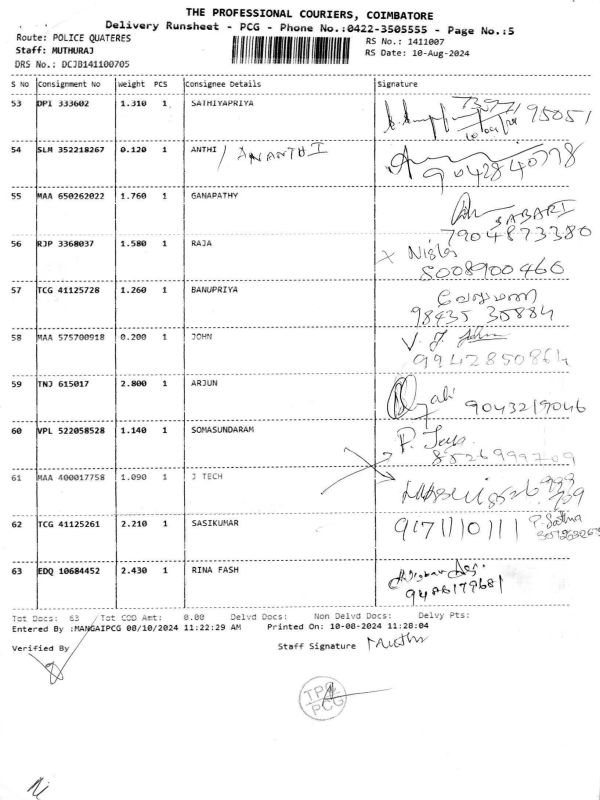 THE PROFESSIONAL COURIERS, COIMBATORE
Delivery Runsheet - PCG - Phone No.:0422-3505555 - Page No.:5
Route: POLICE QUATERES RS No.: 1411007
Staff: MUTHURAJ RS Date: 10-Aug-2024
DRS No.: DCJB141100705
S No Consignment No Weight PCS Consignee Details Signature
53 DPI 333602 1.310 1 SATHIYAPRIYA 95051
54 SLM 352218267 0.120 1 ANTHI / ANANTHI 9042840778
55 MAA 650262022 1.760 1 GANAPATHY SABARI
7904873380
56 RJP 3368037 1.580 1 RAJA
8008900460
57 TCG 41125728 1.260 1 BANUPRIYA
98435 35884
58 MAA 575700918 0.200 1 JOHN V. J.
9942850864
59 TNJ 615017 2.800 1 ARJUN 9043219046
60 VPL 522058528 1.140 1 SOMASUNDARAM P. Jaya
8526999709
61 MAA 400017758 1.090 1 J TECH
62 TCG 41125261 2.210 1 SASIKUMAR 9171110111
63 EDQ 10684452 2.430 1 RINA FASH
Tot Docs: 63 Tot COD Amt: 0.00 Delvd Docs: Non Delvd Docs: Delvy Pts:
Entered By :MANGAIPCG 08/10/2024 11:22:29 AM Printed On: 10-08-2024 11:28:04
Verified By Staff Signature Muthu
TPC
PCG